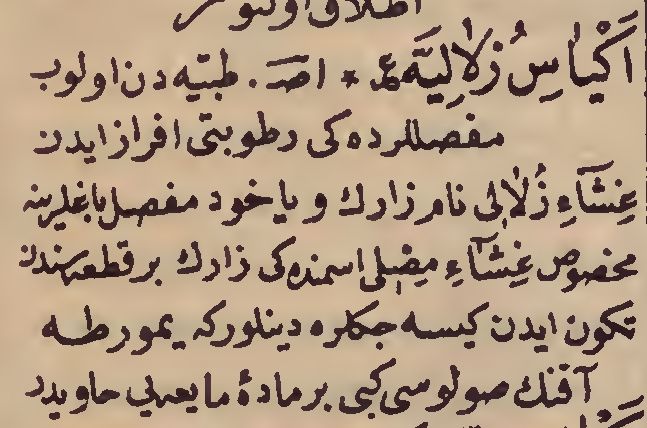 اطلاق اولنور
اَكْيَاسِ زُلَالِيَّه ع * اصـ . طبيه دن اولوب
مفصللرده كى رطوبتى افراز ايدن
غِشَآءِ زُلَالِى نام زارك و ياخود مفصل باغلرينه
مخصوص غِشَآءِ مِصْلِى اسمنده كى زارك بر قطعه سندن
تكون ايدن كيسه جكلره دينلوركه يمورطه
آقنك صولوسى كبى بر مادهٔ مايعه يى حاويدر